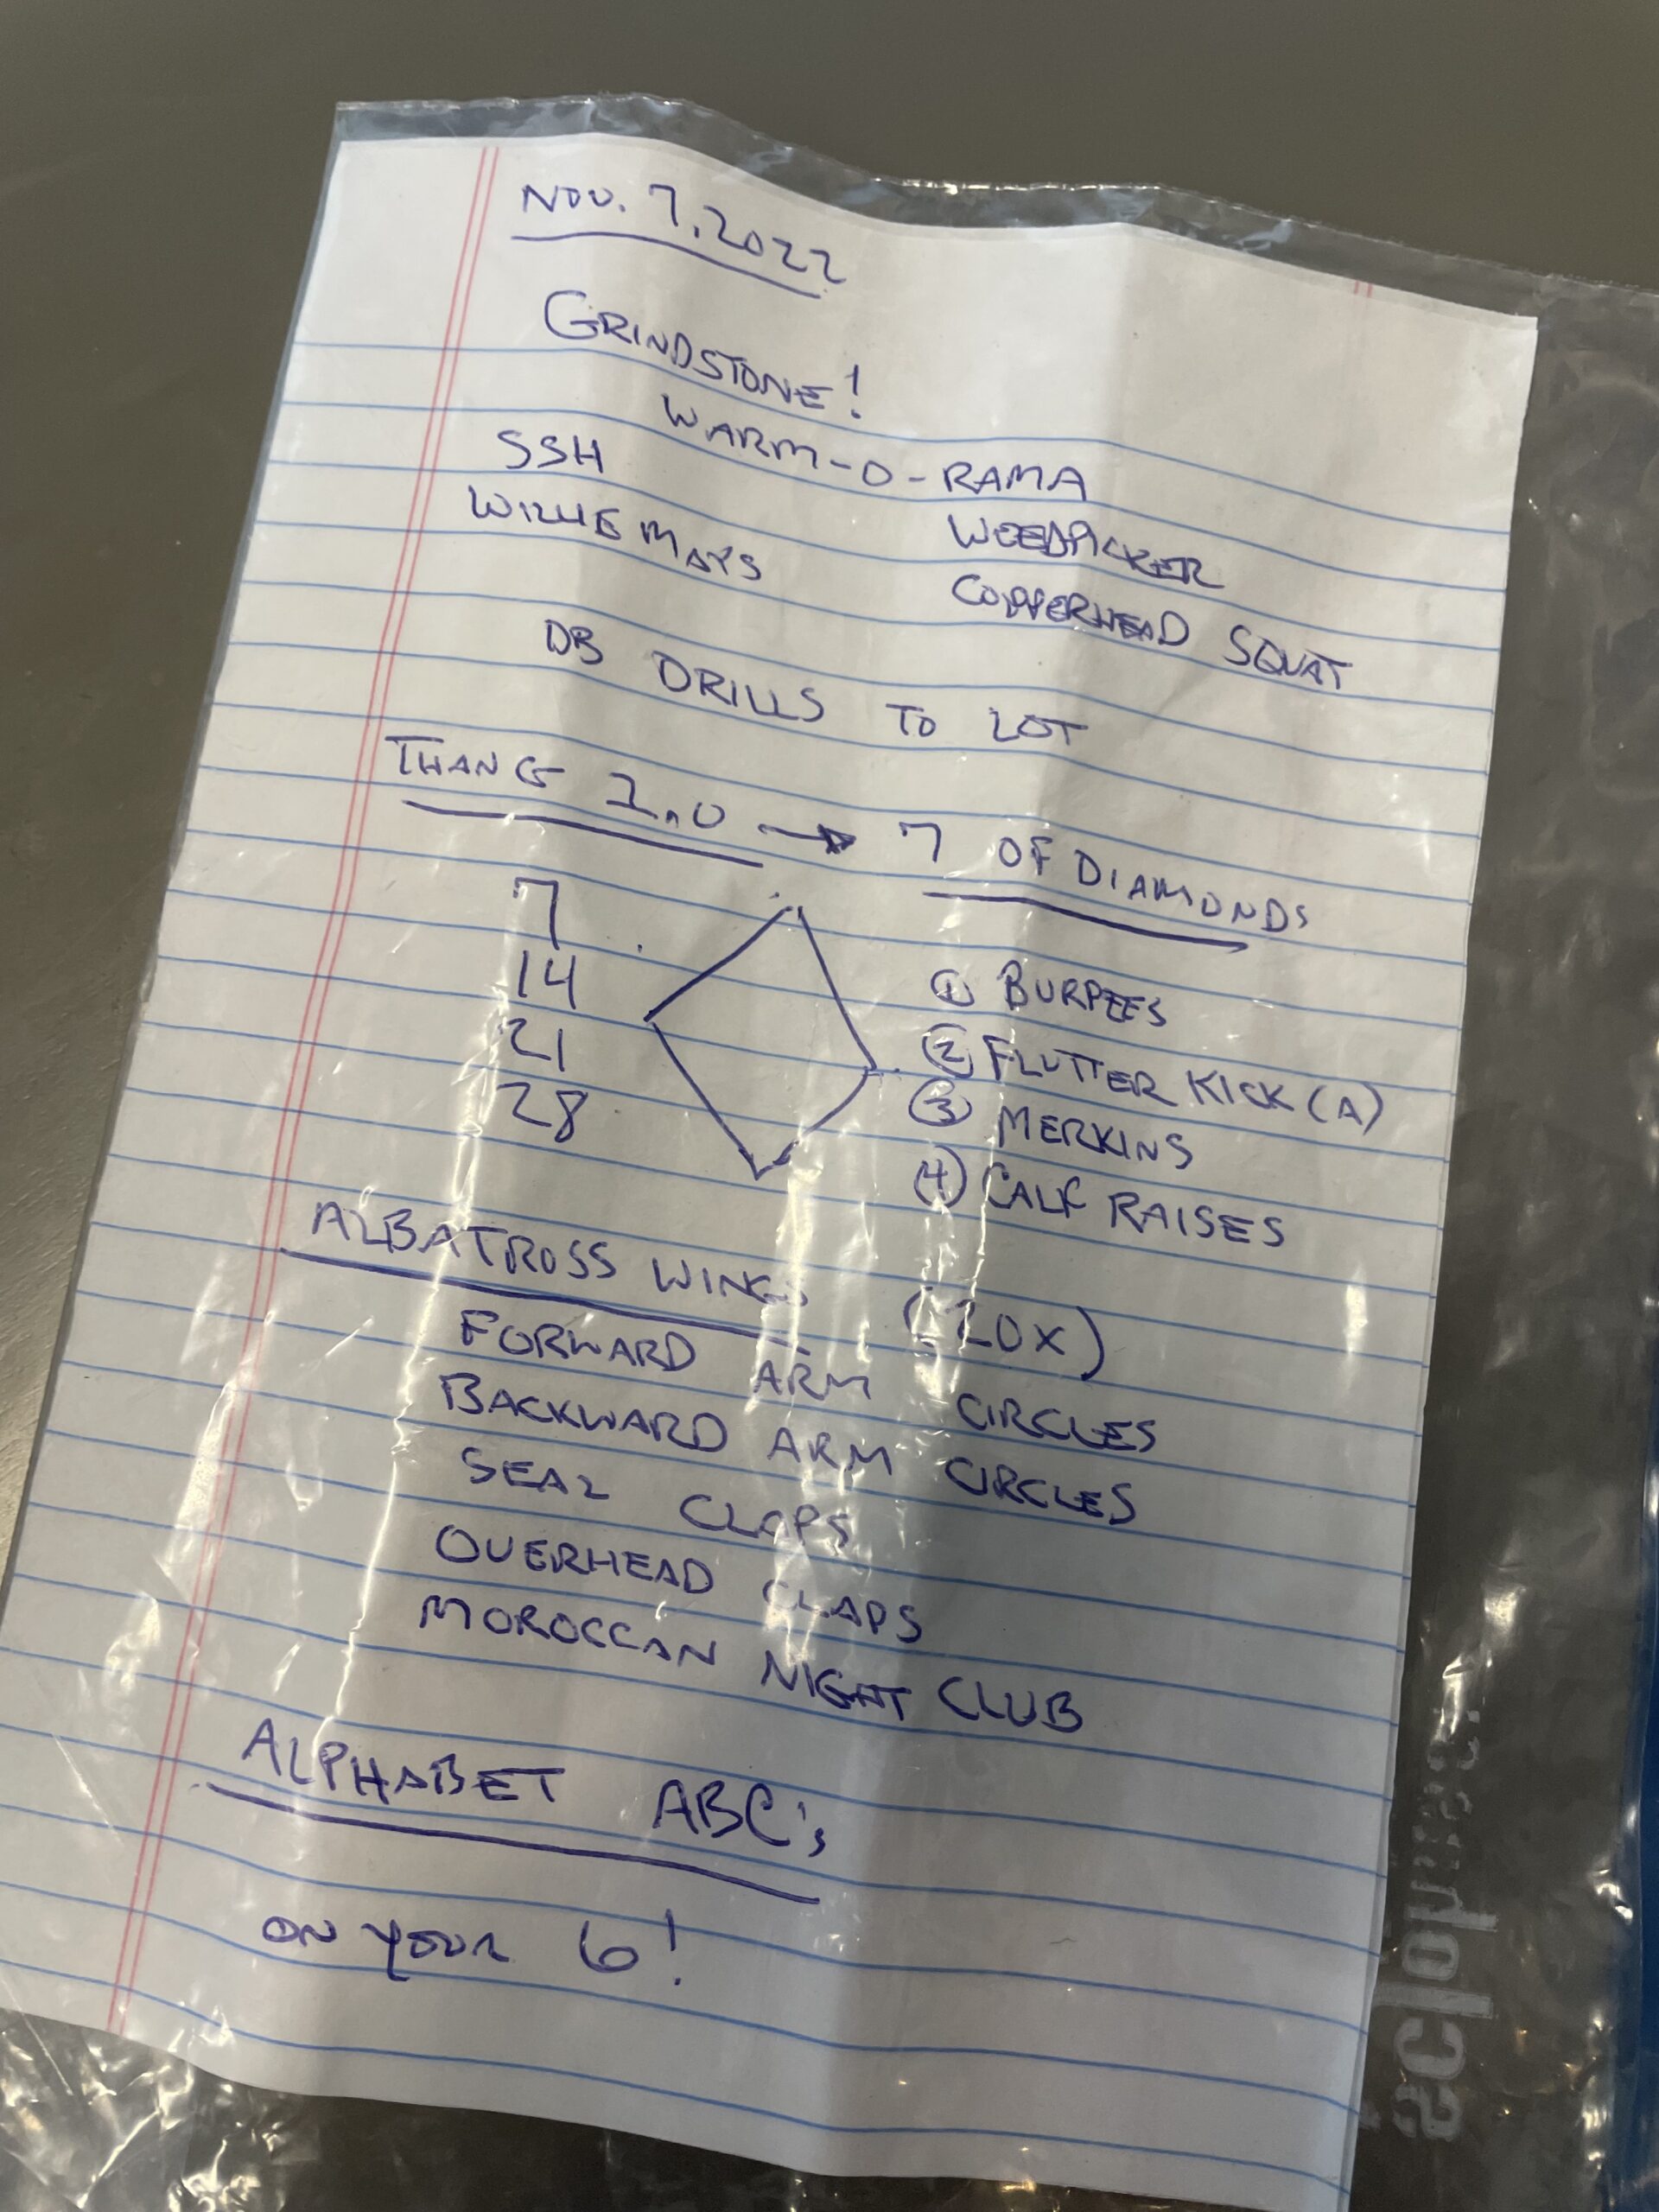 NOV. 7, 2022
GRINDSTONE!
WARM-O-RAMA
SSH
WEEDPICKER
WILLIE MAYS
COPPERHEAD SQUAT
DB DRILLS TO LOT
THANG 1.0 → 7 OF DIAMONDS
7
14
21
28
① BURPEES
② FLUTTER KICK (A)
③ MERKINS
④ CALF RAISES
ALBATROSS WINGS (20X)
FORWARD ARM CIRCLES
BACKWARD ARM CIRCLES
SEAL CLAPS
OVERHEAD CLAPS
MOROCCAN NIGHT CLUB
ALPHABET ABC's
ON YOUR 6!